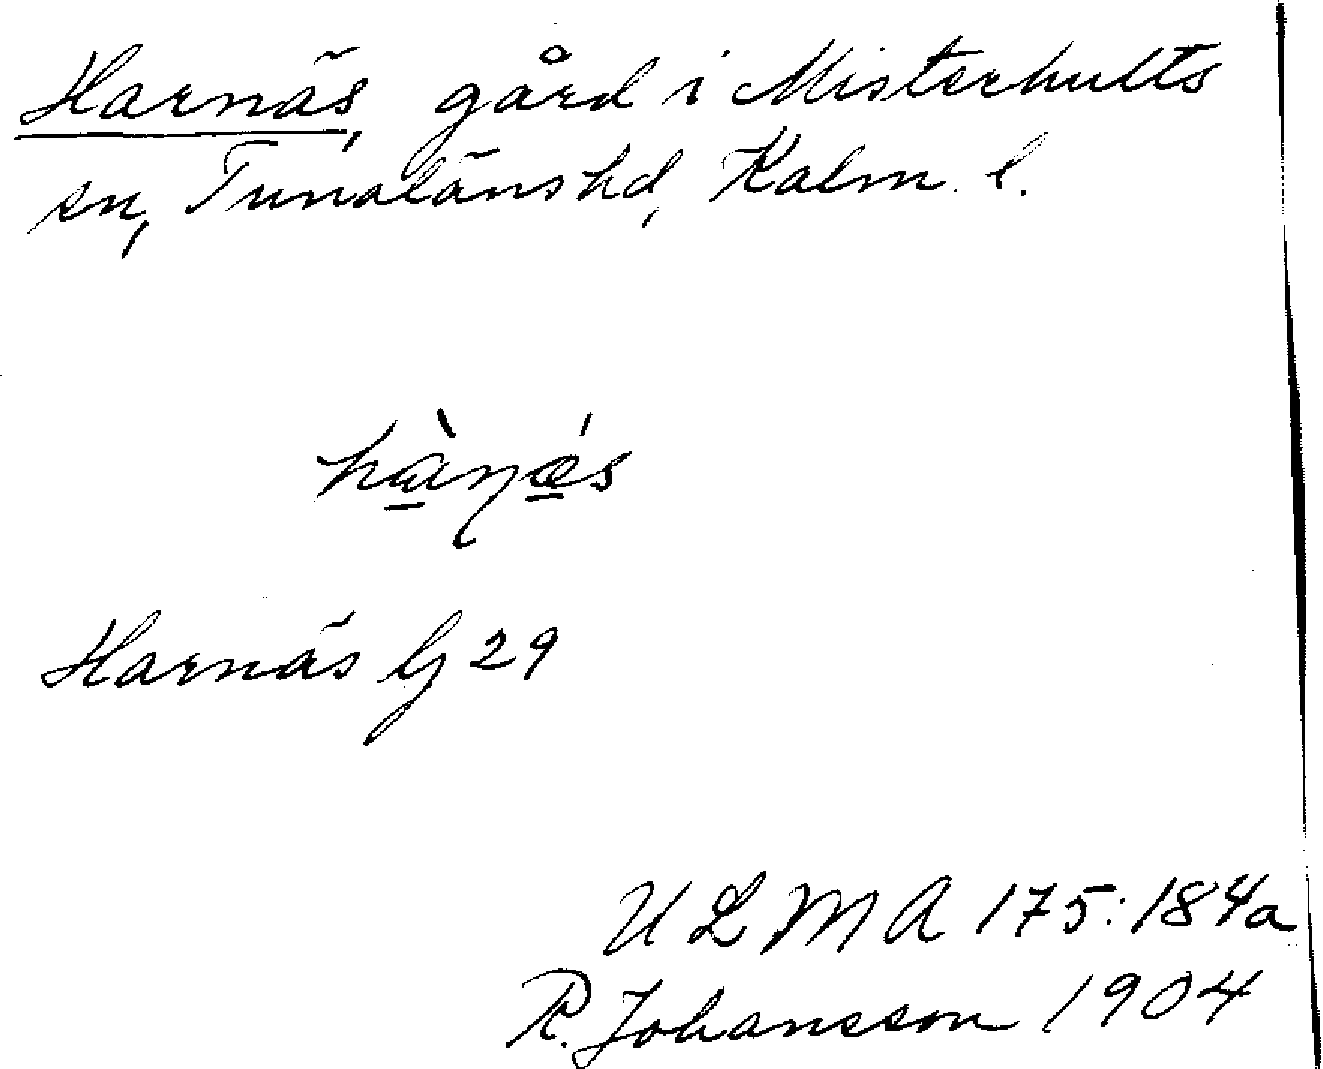 Harnäs, gård i Misterhults
sn, Tunalänshd, Kalm. l.
hàɳǽs
Harnäs Gj 29
ULMA 175:184a
R. Johansson 1904